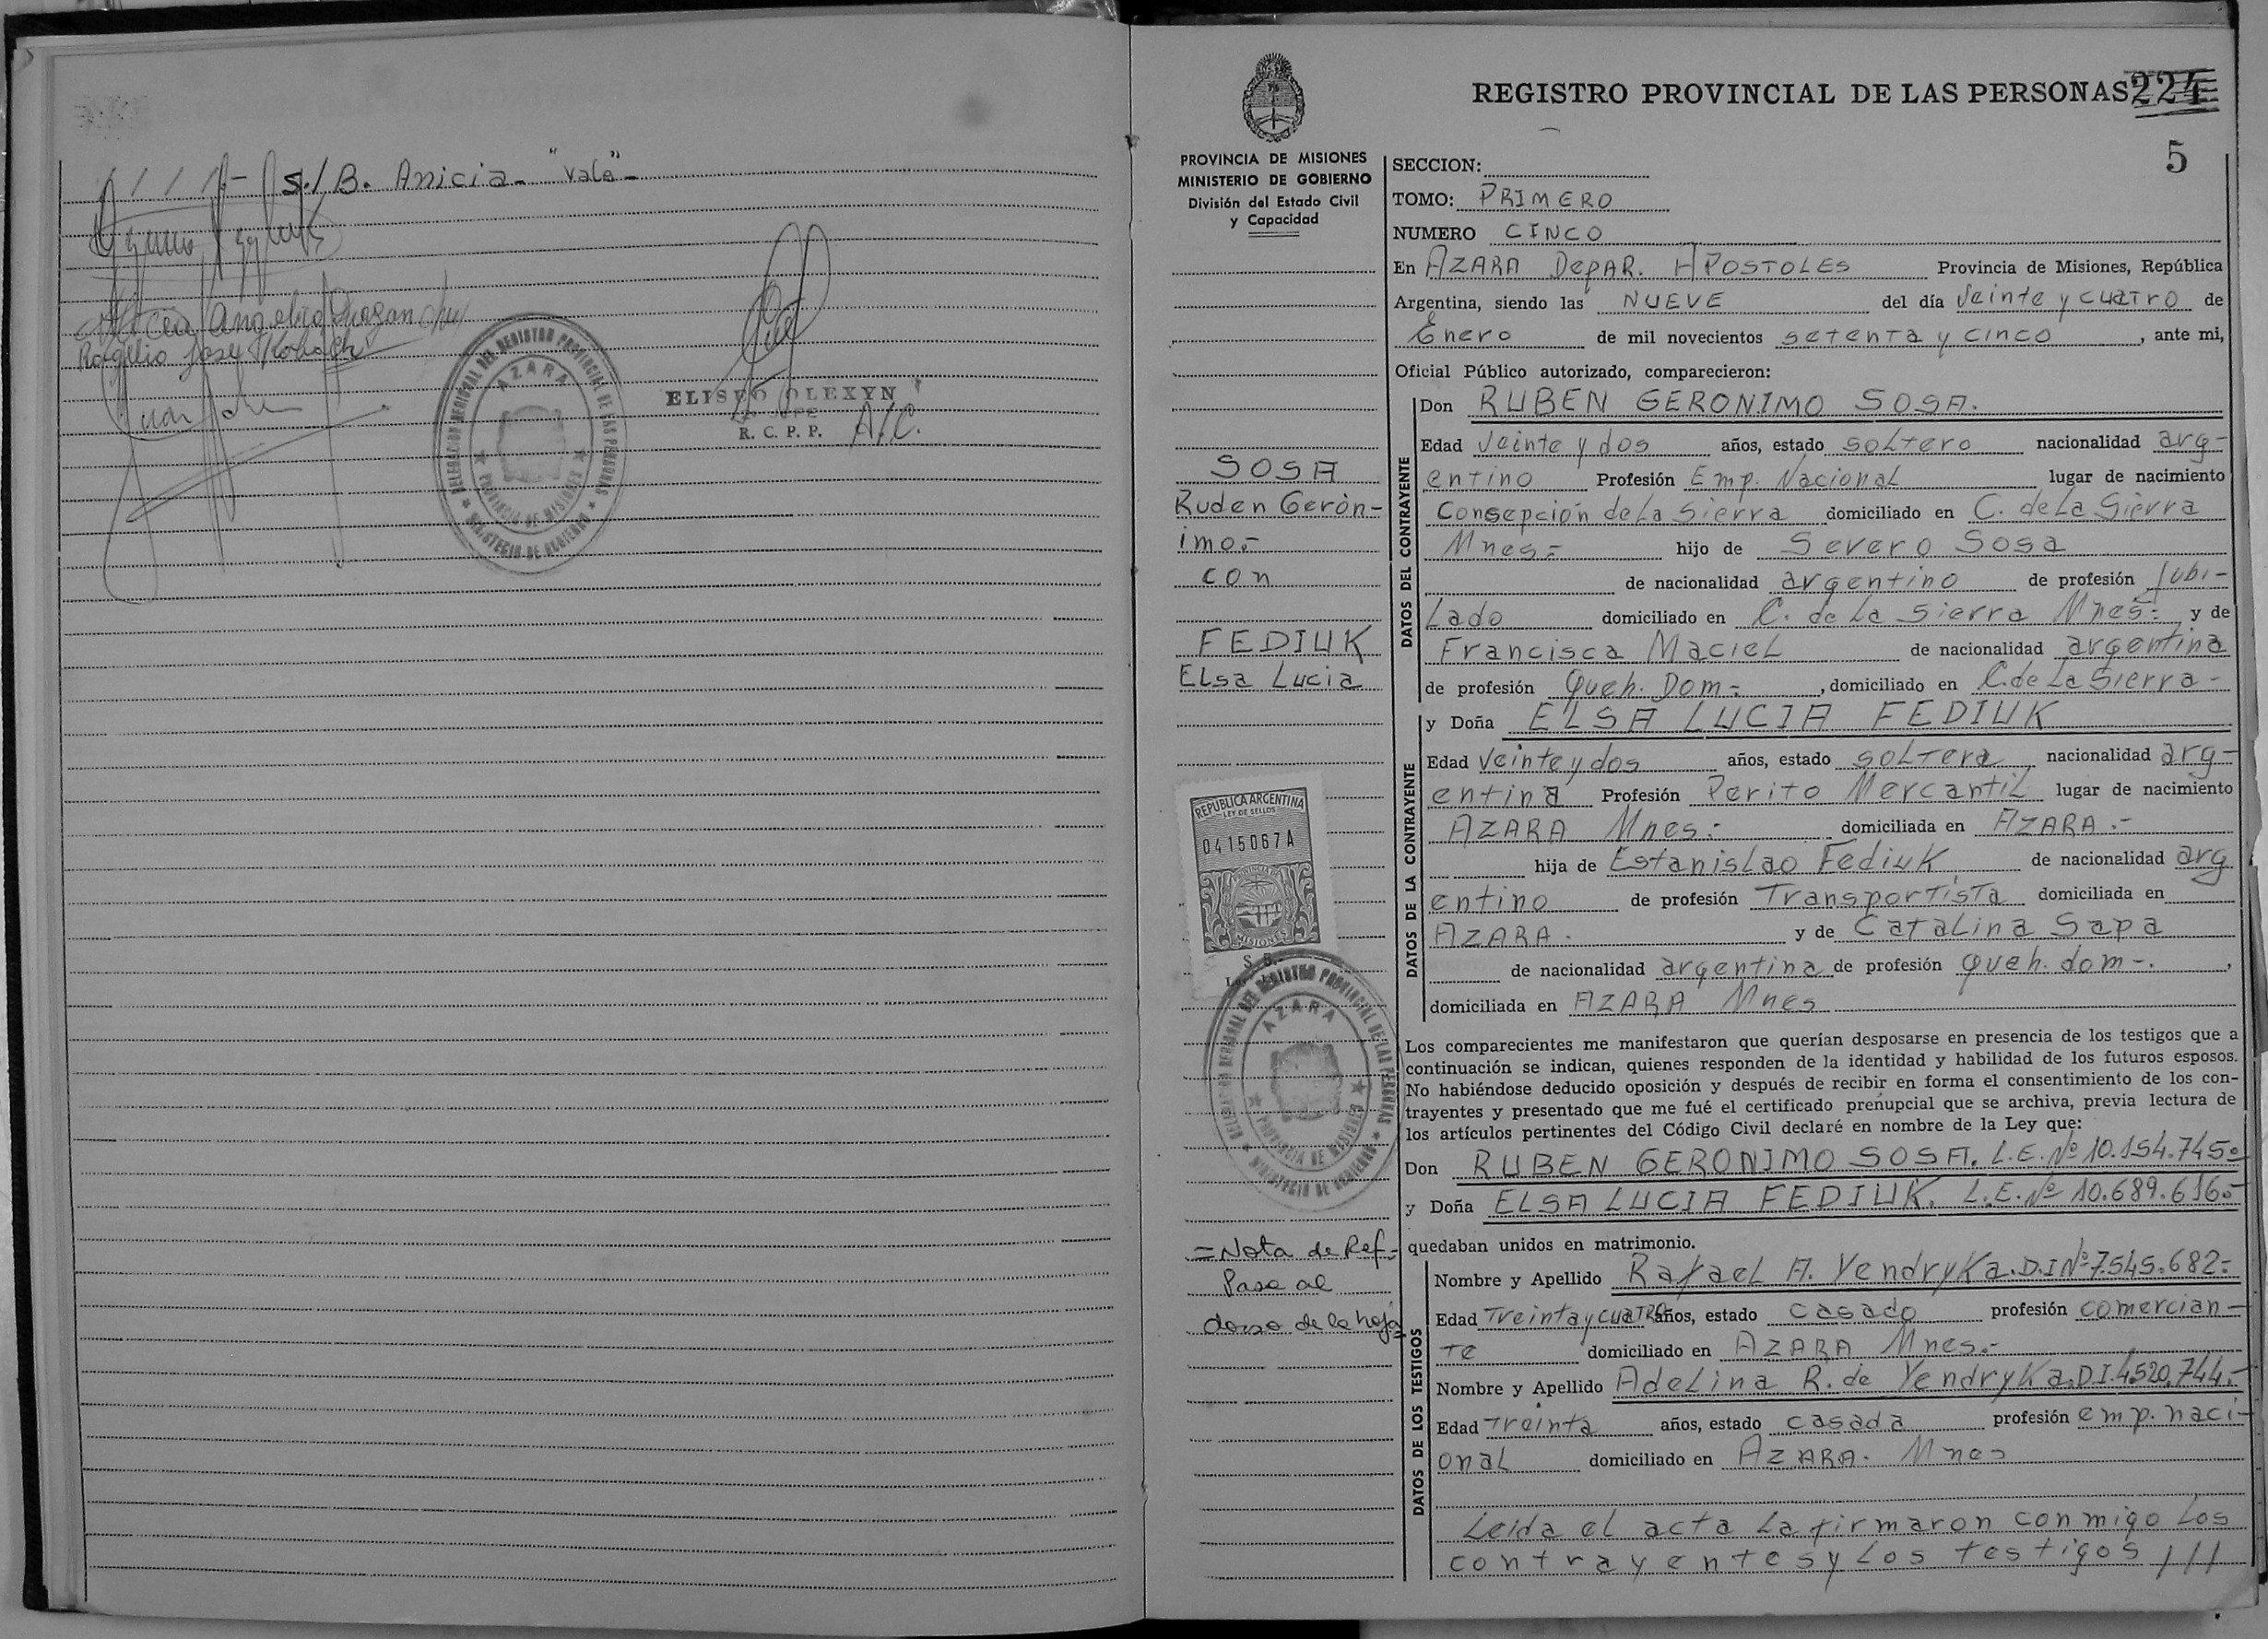 ////.- S./B. Anicia - "Vale" -
Rogelio José
ELISEO OLEXYN
JEFE
R. C. P. P. A/C.
DELEGACION REGIONAL DEL REGISTRO PROVINCIAL DE LAS PERSONAS
AZARA
PROVINCIA DE MISIONES
MINISTERIO DE GOBIERNO
REGISTRO PROVINCIAL DE LAS PERSONAS 224
5
PROVINCIA DE MISIONES
MINISTERIO DE GOBIERNO
División del Estado Civil
y Capacidad
SOSA
Ruden Gerón-
imo.-
con
FEDIUK
Elsa Lucia
REPUBLICA ARGENTINA
LEY DE SELLOS
0415067A
PROVINCIA DE
MISIONES
DELEGACION REGIONAL DEL REGISTRO PROVINCIAL DE LAS PERSONAS
AZARA
PROVINCIA DE MISIONES
MINISTERIO DE GOBIERNO
= Nota de Ref -
Pase al
dorso de la hoja
SECCION:
TOMO: PRIMERO
NUMERO CINCO
En AZARA DepAR. APOSTOLES Provincia de Misiones, República
Argentina, siendo las NUEVE del día Veinte y cuatro de
Enero de mil novecientos setenta y cinco, ante mi,
Oficial Público autorizado, comparecieron:
DATOS DEL CONTRAYENTE
Don RUBEN GERONIMO SOSA.
Edad Veinte y dos años, estado soltero nacionalidad arg-
entino Profesión Emp. Nacional lugar de nacimiento
Consepción de la Sierra domiciliado en C. de la Sierra
Mnes.- hijo de Severo Sosa
de nacionalidad argentino de profesión Jubi-
lado domiciliado en C. de la Sierra Mnes.- y de
Francisca Maciel de nacionalidad argentina
de profesión Queh. Dom.-, domiciliado en C. de la Sierra -
DATOS DE LA CONTRAYENTE
y Doña ELSA LUCIA FEDIUK
Edad Veinte y dos años, estado soltera nacionalidad arg-
entina Profesión Perito Mercantil lugar de nacimiento
AZARA Mnes.- domiciliada en AZARA.-
hija de Estanislao Fediuk de nacionalidad arg
entino de profesión Transportista domiciliada en
AZARA. y de Catalina Sapa
de nacionalidad argentina de profesión queh. dom-.,
domiciliada en AZARA Mnes
Los comparecientes me manifestaron que querían desposarse en presencia de los testigos que a
continuación se indican, quienes responden de la identidad y habilidad de los futuros esposos.
No habiéndose deducido oposición y después de recibir en forma el consentimiento de los con-
trayentes y presentado que me fué el certificado prenupcial que se archiva, previa lectura de
los artículos pertinentes del Código Civil declaré en nombre de la Ley que:
Don RUBEN GERONIMO SOSA. L.E. Nº 10.154.745.-
y Doña ELSA LUCIA FEDIUK. L.E. Nº 10.689.616.-
quedaban unidos en matrimonio.
DATOS DE LOS TESTIGOS
Nombre y Apellido Rafael A. Yendryka. D.I Nº 7.545.682.-
Edad Treinta y cuatro años, estado casado profesión comercian-
te domiciliado en AZARA Mnes.-
Nombre y Apellido Adelina R. de Yendryka. D.I. 4.520.744.-
Edad Treinta años, estado casada profesión emp. naci-
onal domiciliado en AZARA. Mnes
Leida el acta la firmaron conmigo los
contrayentes y los testigos ///